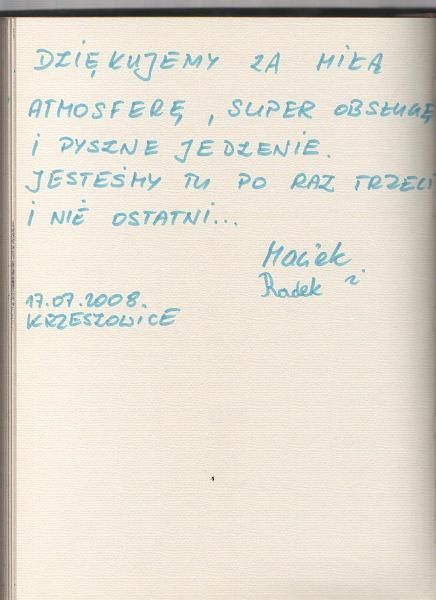 DZIĘKUJEMY ZA MIŁĄ
ATMOSFERĘ, SUPER OBSŁUGĘ
I PYSZNE JEDZENIE.
JESTEŚMY TU PO RAZ TRZECI
I NIE OSTATNI...
Maciek
Radek i
17.07.2008.
KRZESZOWICE